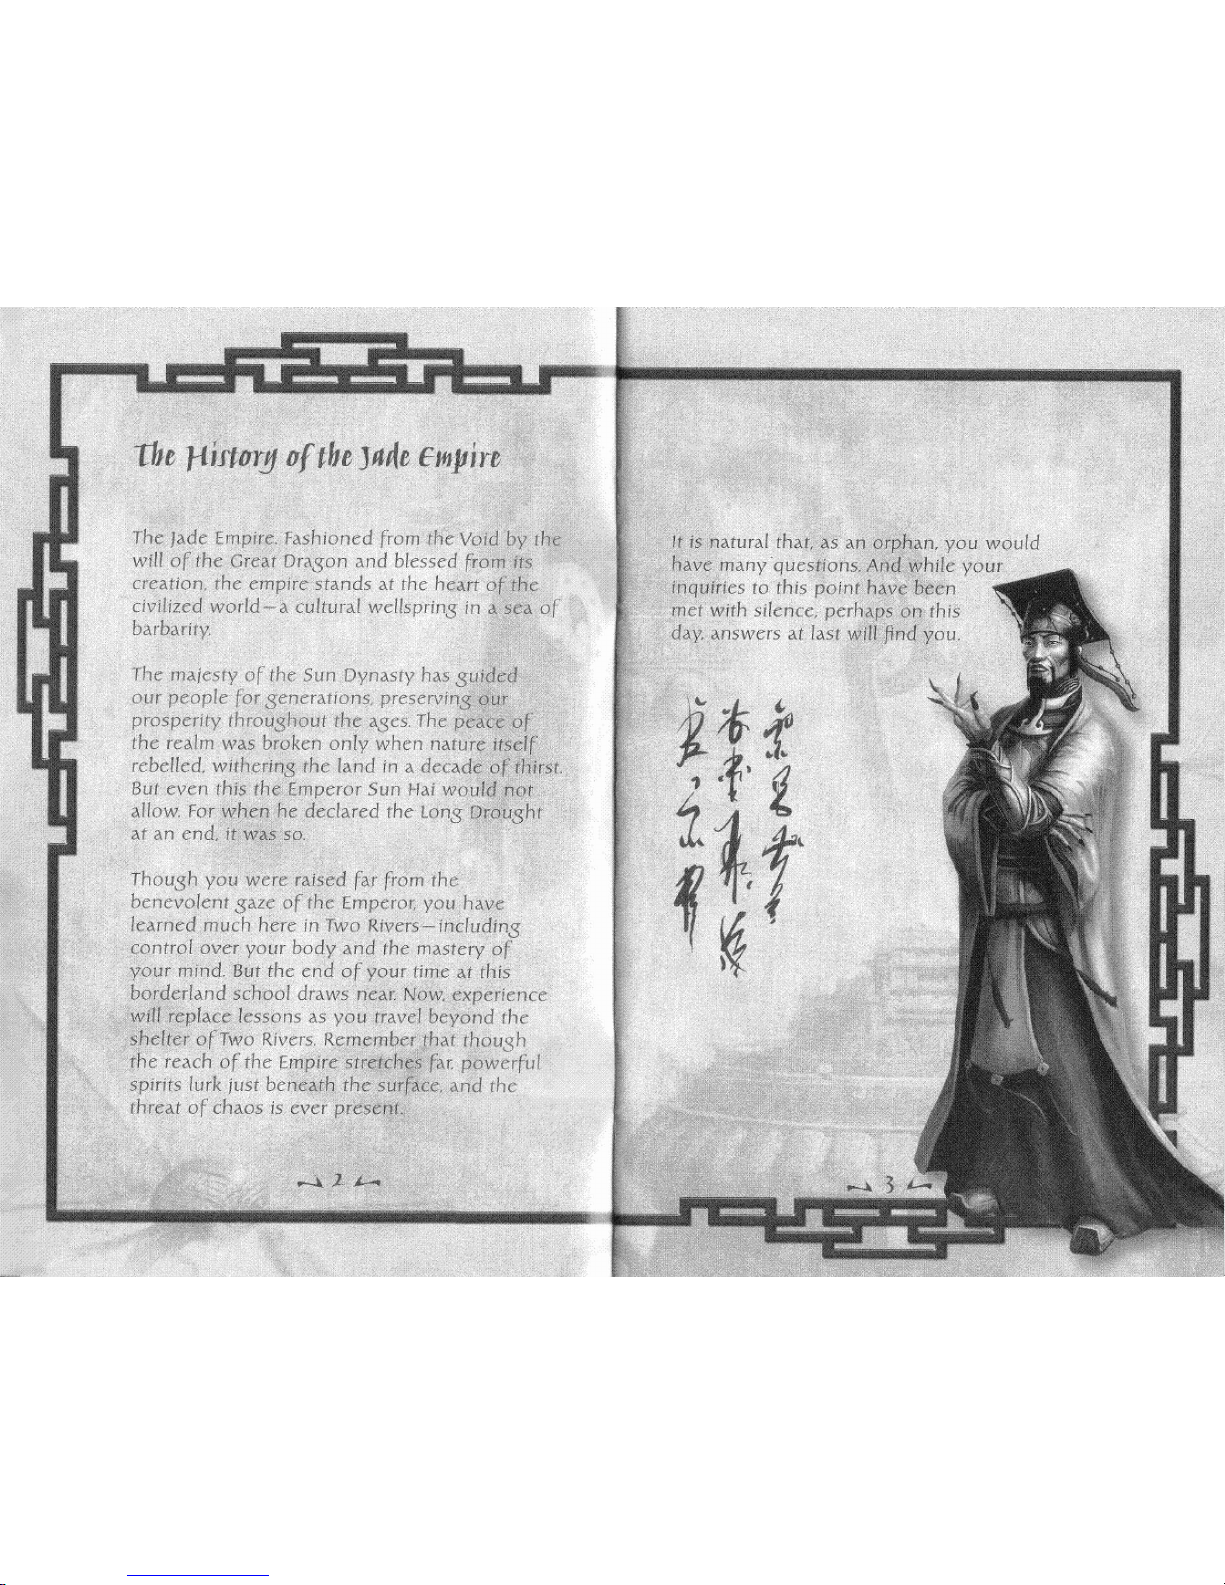 The History of the Jade Empire
The Jade Empire. Fashioned from the Void by the
will of the Great Dragon and blessed from its
creation, the empire stands at the heart of the
civilized world—a cultural wellspring in a sea of
barbarity.
The majesty of the Sun Dynasty has guided
our people for generations, preserving our
prosperity throughout the ages. The peace of
the realm was broken only when nature itself
rebelled, withering the land in a decade of thirst.
But even this the Emperor Sun Hai would not
allow. For when he declared the Long Drought
at an end, it was so.
Though you were raised far from the
benevolent gaze of the Emperor, you have
learned much here in Two Rivers—including
control over your body and the mastery of
your mind. But the end of your time at this
borderland school draws near. Now, experience
will replace lessons as you travel beyond the
shelter of Two Rivers. Remember that though
the reach of the Empire stretches far, powerful
spirits lurk just beneath the surface, and the
threat of chaos is ever present.
2
It is natural that, as an orphan, you would
have many questions. And while your
inquiries to this point have been
met with silence, perhaps on this
day, answers at last will find you.
3